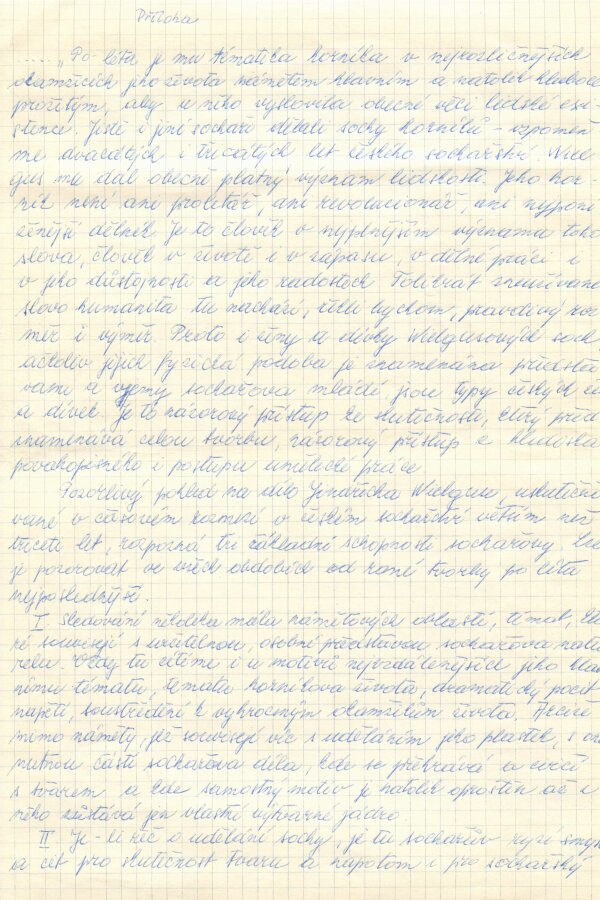 Příloha
..... „Po léta je mu tématika horníka v nejrozličnějších
okamžicích jeho života námětem hlavním a natolik hluboce
prožitým, aby u něho vyslovila obecné věci lidské exi-
stence. Jistě i jiní sochaři dělali sochy horníků – vzpomeň
me dvacátých i třicátých let českého sochařství. Wiel
gus mu dal obecně platný význam lidskosti. Jeho hor-
ník není ani proletář, ani revolucionář, ani nejponí
ženější dělník. Je to člověk v nejplnějším významu toho
slova, člověk v životě i v zápasu, v dělné práci i
v jeho důstojnosti a jeho radostech. Tolikrát zneužívané
slovo humanita tu nachází, řekli bychom, pravdivý roz
měr i výměr. Proto i ženy a dívky Wielgusových soch,
ačkoliv jejich fyzická podoba je znamenána předsta
vami a vjemy sochařova mládí jsou typy českých že
a dívek. Je to názorový přístup ke skutečnosti, který před
znamenává celou tvorbu, názorový přístup z hlediska
povahopisného i postupu umělecké práce.
Pozorlivý pohled na dílo Jindřicha Wielguse, uskuteční
vané v časovém rozmezí v českém sochařství větším než
třiceti let, rozpozná tři základní schopnosti sochařovy. Lze
je pozorovat ve všech obdobích od rané tvorby po léta
nejposlednější.
I. Sledování několika mála námětových oblastí, témat, kte
ré souvisejí s určitelnou, osobní představou sochařova natu
relu. Vždy tu cítíme i u motivů nejvzdálenějších jeho hlav
nímu tématu, tematu horníkova života, dramatický pocit
napětí, soustředění k vyhroceným okamžikům života. Arciže
mimo náměty, jež souvisejí víc s uděláním jeho plastik, s
nutnou částí sochařova díla, kde se přehrává a cvičí
s tvarem a kde samostný motiv je natolik oproštěn až z
něho zůstává jen vlastní výtvarné jádro.
II Je-li řeč o udělání sochy, je tu sochařův ryzí smys
a cit pro skutečnost tvaru a napotom i pro sochařský